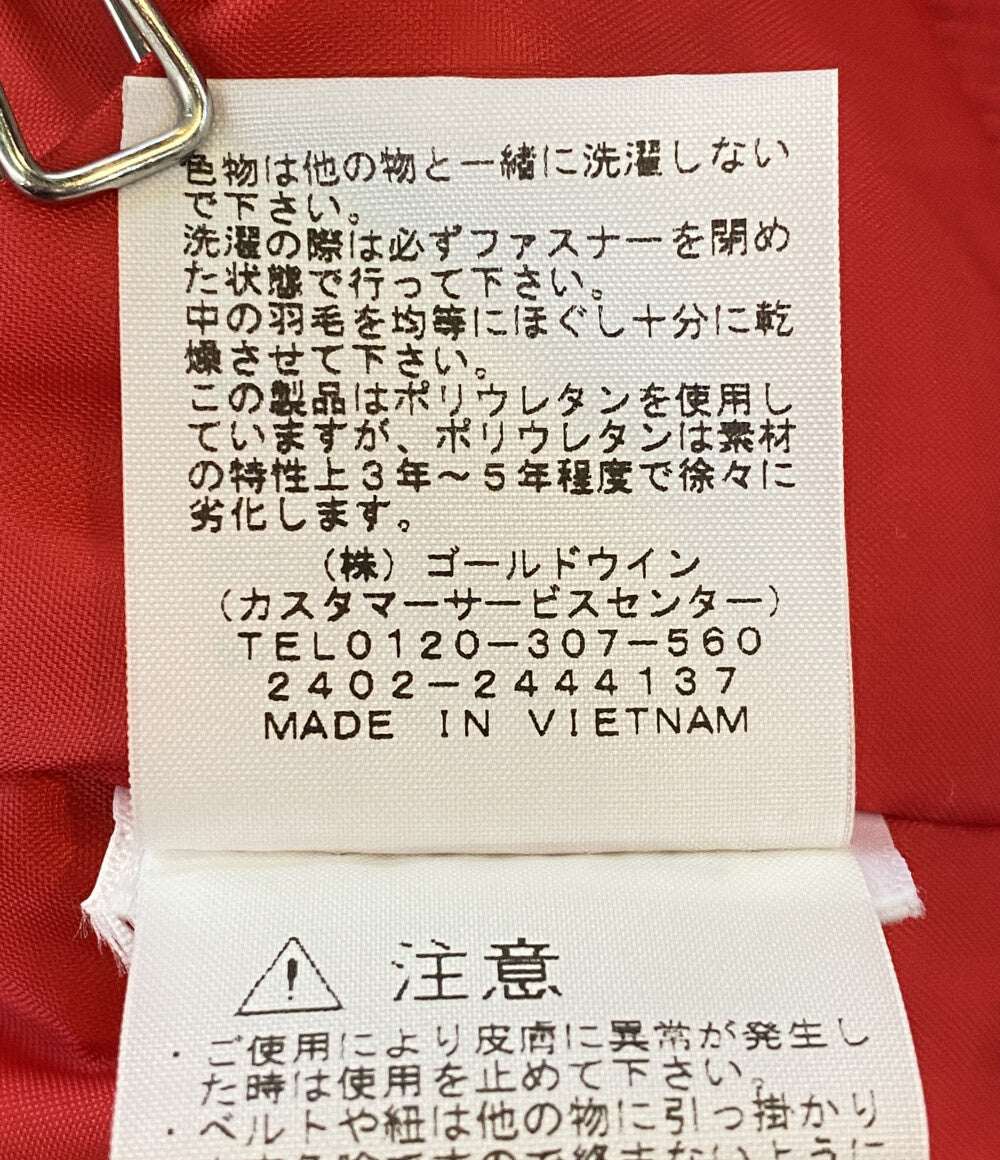 色物は他の物と一緒に洗濯しない
で下さい。
洗濯の際は必ずファスナーを閉め
た状態で行って下さい。
中の羽毛を均等にほぐし十分に乾
燥させて下さい。
この製品はポリウレタンを使用し
ていますが、ポリウレタンは素材
の特性上3年~5年程度で徐々に
劣化します。
(株)ゴールドウイン
(カスタマーサービスセンター)
TEL0120-307-560
2402-2444137
MADE IN VIETNAM
注意
・ご使用により皮膚に異常が発生し
た時は使用を止めて下さい。
・ベルトや紐は他の物に引っ掛かり
ますので絡まないように